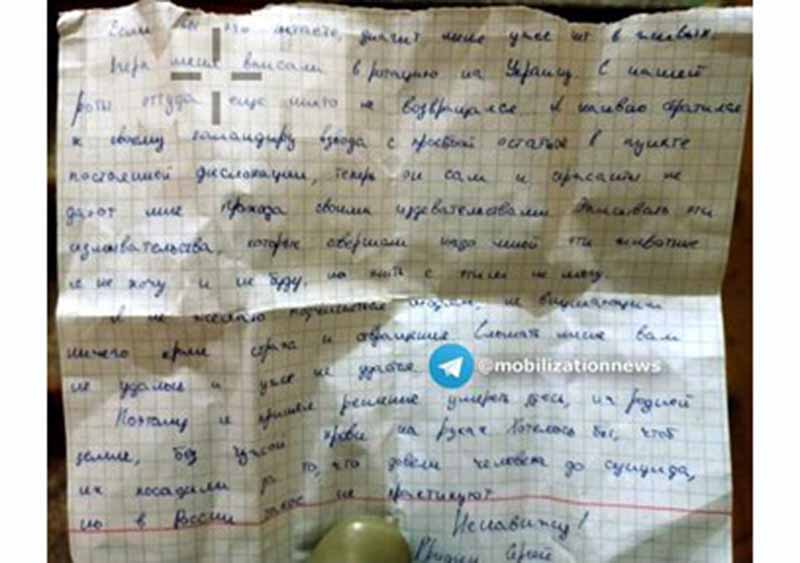 Если вы это читаете, значит, меня уже нет в живых.
Вчера меня вписали в ротацию на Украину. С нашей
роты оттуда еще никто не возвращался. Я наивно обратился
к своему командиру взвода с просьбой остаться в пункте
постоянной дислокации, теперь он сам и сержанты не
дают мне прохода своими издевательствами. Описывать эти
издевательства, которые совершали надо мной эти животные
я не хочу и не буду, но жить с этим не могу.
Я не желаю подчиняться людям, не внушающим
ничего кроме страха и отвращения. Сломать меня вам
не удалось и уже не удастся.
@mobilizationnews
Поэтому я принял решение умереть здесь, на родной
земле, без чужой крови на руках. Хотелось бы, чтоб
их посадили за то, что довели человека до суицида,
но в России такое не практикуют.
Ненавижу!
Сергей